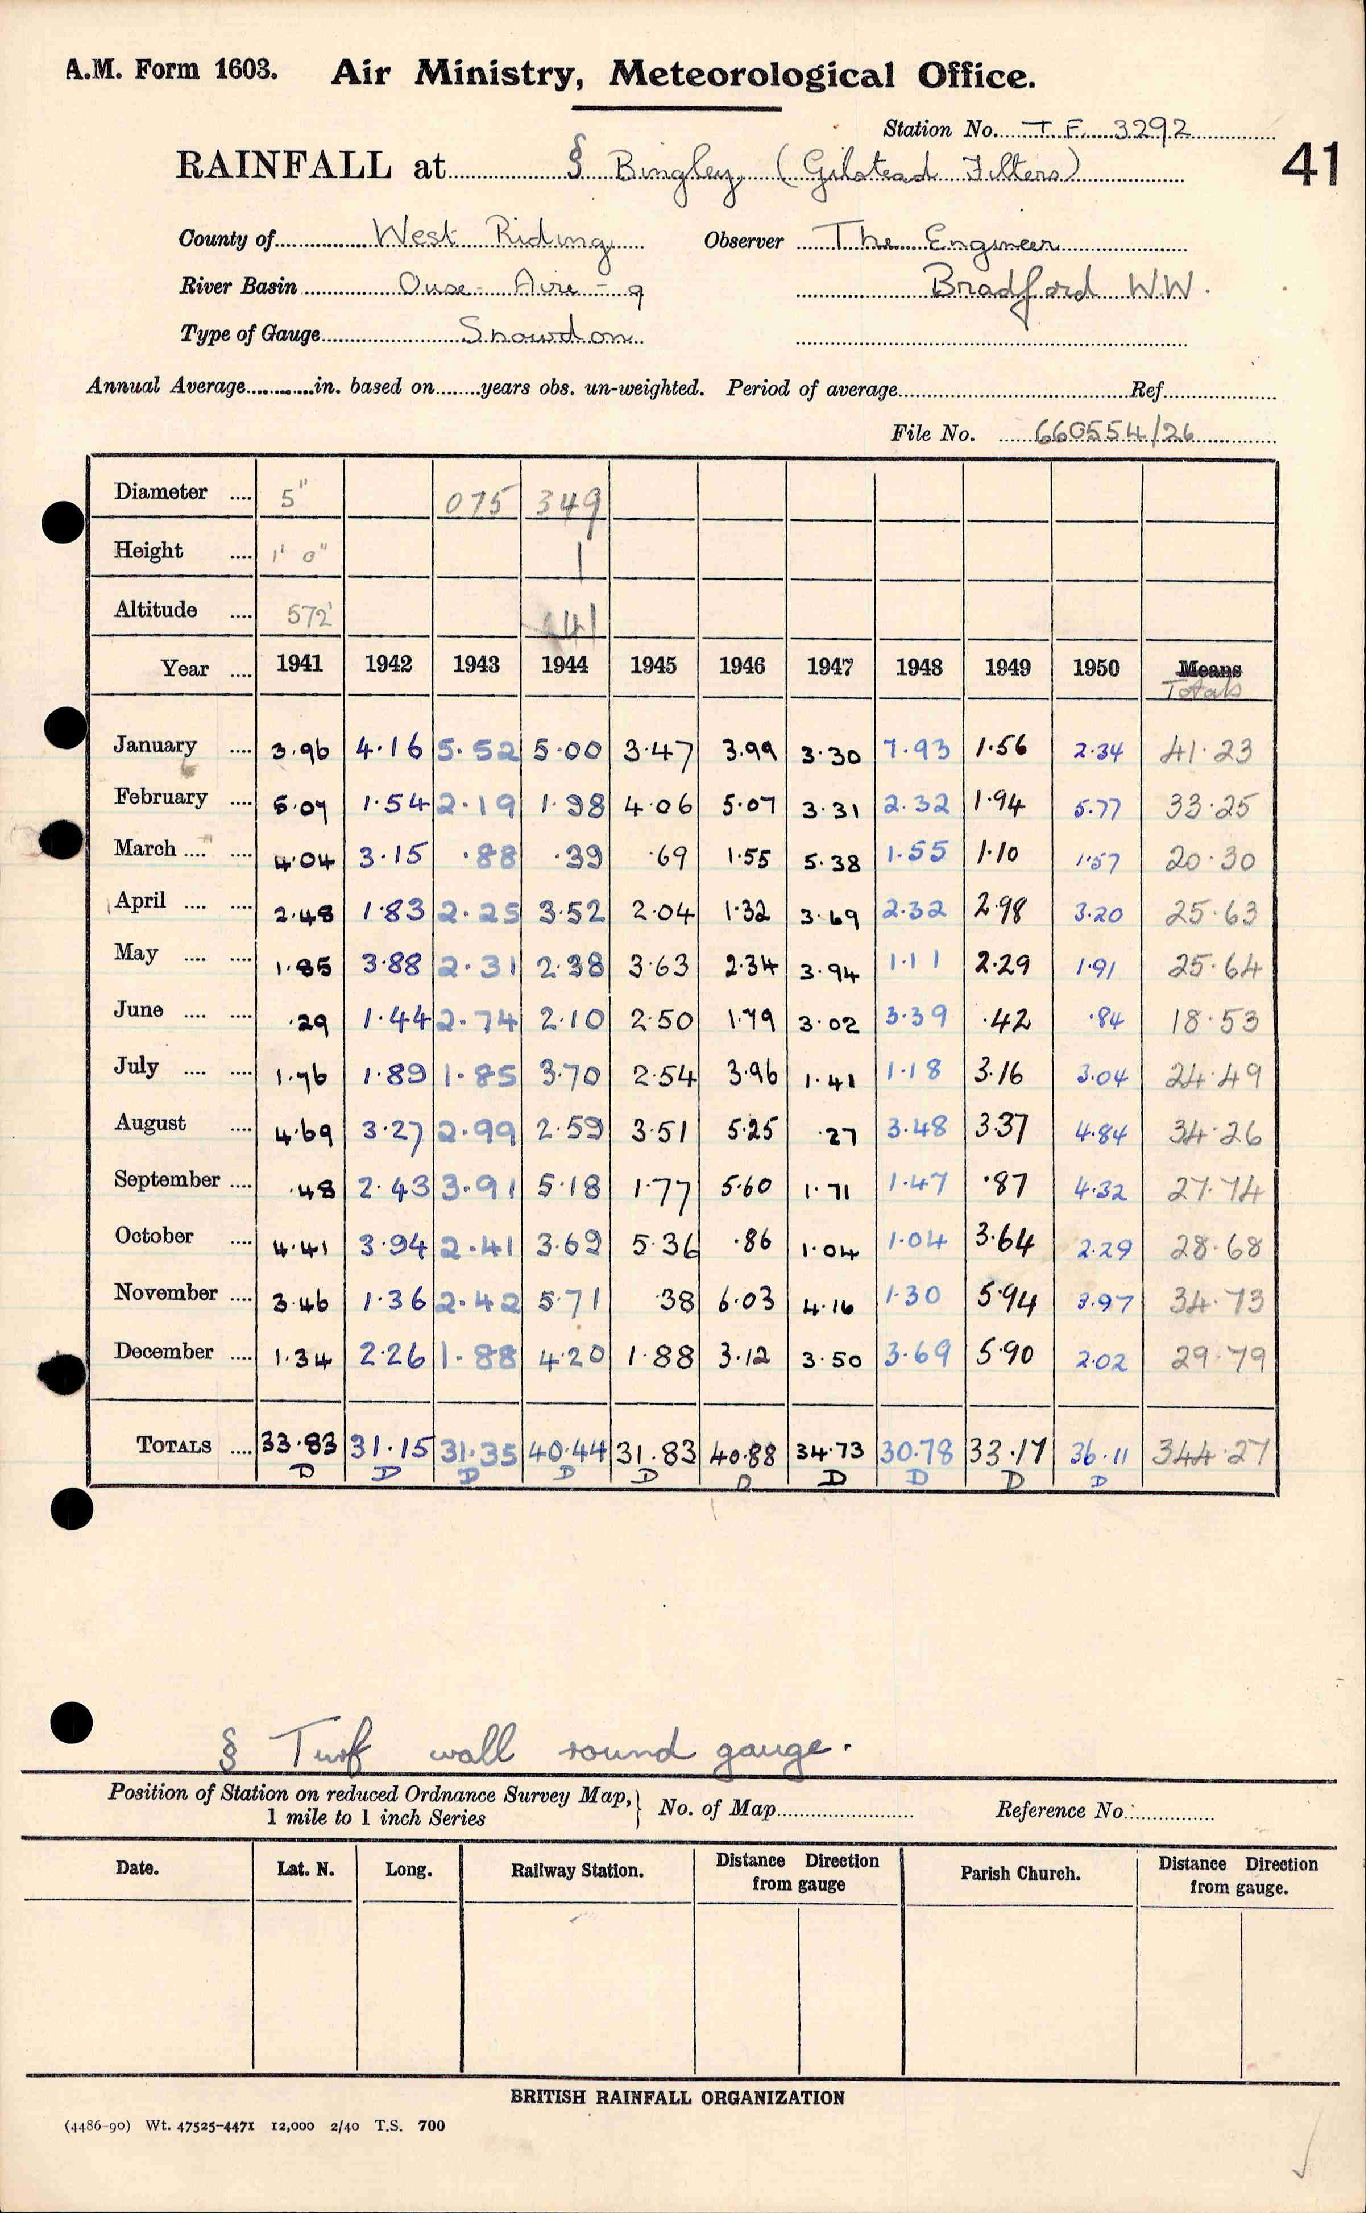 A.M. Form 1603. Air Ministry, Meteorological Office.
Station No. T F 3292
41
RAINFALL at § Bingley (Gilstead Filters)
County of West Riding Observer The Engineer
River Basin Ouse - Aire - 9 Bradford W.W.
Type of Gauge Snowdon
Annual Average in. based on years obs. un-weighted. Period of average Ref
File No. 660554/26
Diameter 5" 075 349
Height 1' 0" 1
Altitude 572' 41
Year 1941 1942 1943 1944 1945 1946 1947 1948 1949 1950 Means
Totals
January 3.96 4.16 5.52 5.00 3.47 3.99 3.30 7.93 1.56 2.34 41.23
February 5.07 1.54 2.19 1.98 4.06 5.07 3.31 2.32 1.94 5.77 33.25
March 4.04 3.15 .88 .39 .69 1.55 5.38 1.55 1.10 1.57 20.30
April 2.48 1.83 2.25 3.52 2.04 1.32 3.69 2.32 2.98 3.20 25.63
May 1.85 3.88 2.31 2.38 3.63 2.34 3.94 1.11 2.29 1.91 25.64
June .29 1.44 2.74 2.10 2.50 1.79 3.02 3.39 .42 .84 18.53
July 1.76 1.89 1.85 3.70 2.54 3.96 1.41 1.18 3.16 3.04 24.49
August 4.69 3.27 2.99 2.59 3.51 5.25 .27 3.48 3.37 4.84 34.26
September .48 2.43 3.91 5.18 1.77 5.60 1.71 1.47 .87 4.32 27.74
October 4.41 3.94 2.41 3.69 5.36 .86 1.04 1.04 3.64 2.29 28.68
November 3.46 1.36 2.42 5.71 .38 6.03 4.16 1.30 5.94 3.97 34.73
December 1.34 2.26 1.88 4.20 1.88 3.12 3.50 3.69 5.90 2.02 29.79
TOTALS 33.83 31.15 31.35 40.44 31.83 40.88 34.73 30.78 33.17 36.11 344.27
D D D D D D D D D D
§ Turf wall round gauge.
Position of Station on reduced Ordnance Survey Map, No. of Map Reference No.
1 mile to 1 inch Series
Date. Lat. N. Long. Railway Station. Distance Direction from gauge Parish Church. Distance Direction from gauge.
BRITISH RAINFALL ORGANIZATION
(4486-90) Wt. 47525-4471 12,000 2/40 T.S. 700